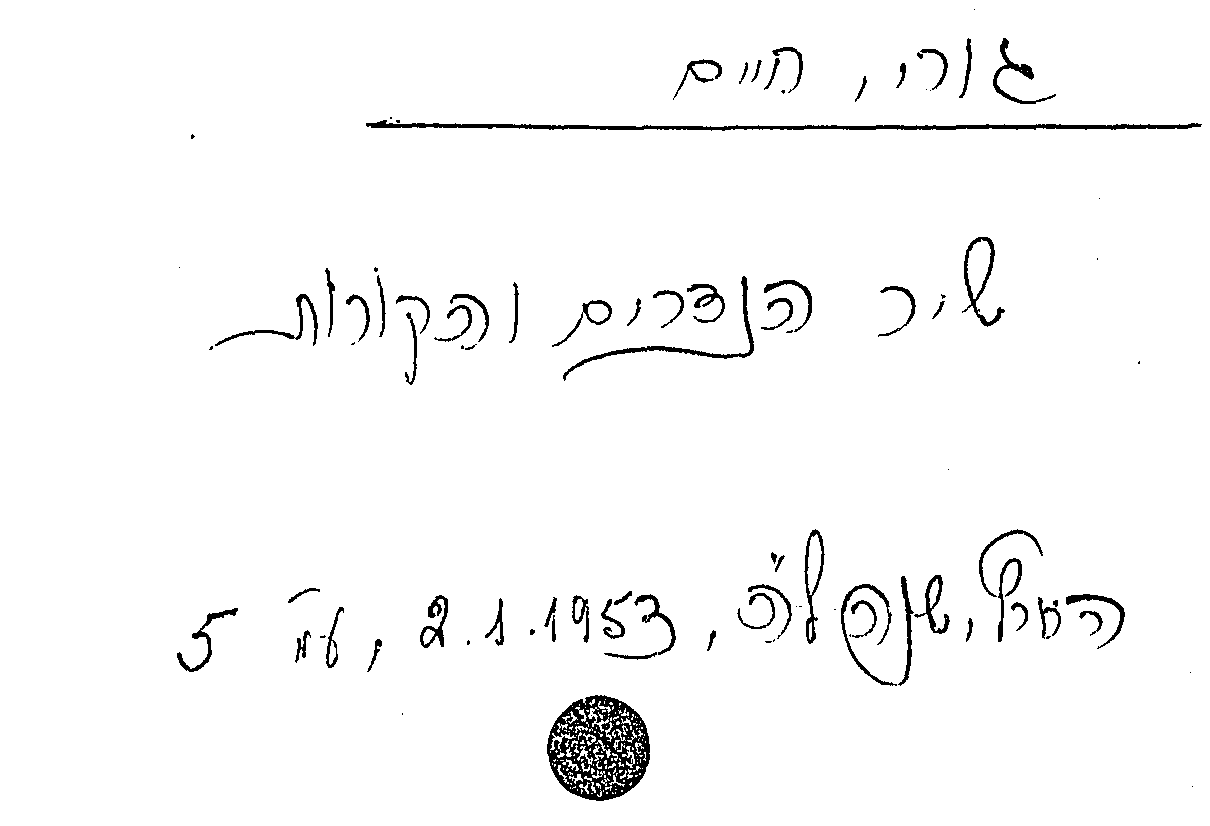 גורי, חיים
שיר הנדרים והקורות
הארץ, שנה ל"ה, 2.1.1953, עמ' 5